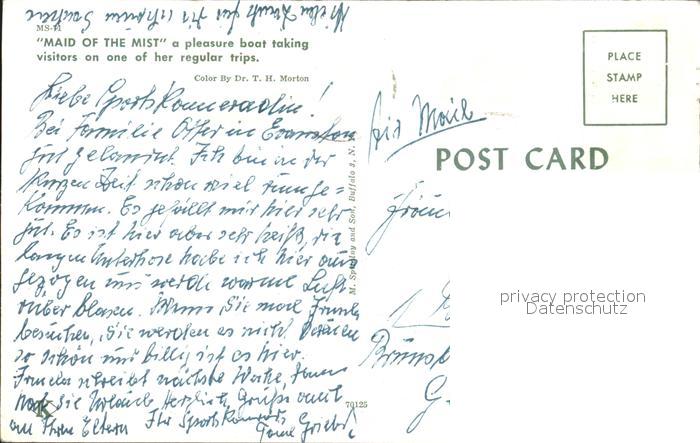 Vielen Dank für die schönen
MS-11
"MAID OF THE MIST" a pleasure boat taking
visitors on one of her regular trips.
Color By Dr. T. H. Morton
Liebe Sportskameradin!
Bei Familie Offer in Evanston
gut gelandet. Ich bin in der
kurzen Zeit schon viel rumge=
kommen. Es gefällt mir hier sehr
gut. Es ist hier aber sehr heiß, die
lange Unterhose habe ich hier aus
gezogen und werde warme Luft
rüber blasen. Wenn Sie mal
besuchen, Sie werden es nicht bereuen
so schön und billig ist es hier.
schreibt nächste Woche, dann
Sie Urlaub. Herzlich Gruß auch
an Ihre Eltern Ihr Sportskamerad
M. Spelky and Son, Buffalo 3, N. Y.
K
70125
Air Mail
PLACE
STAMP
HERE
POST CARD
privacy protection
Datenschutz